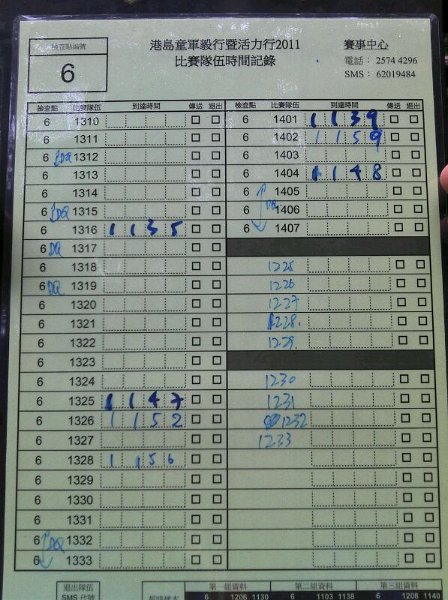 檢查點編號
6
港島童軍毅行暨活力行2011
比賽隊伍時間記錄
賽事中心
電話： 2574 4296
SMS： 62019484
檢查點 比賽隊伍 到達時間 傳送 退出
6 1310
6 1311
6 DQ 1312
6 1313
6 1314
6 DQ 1315
6 1316 1135
6 DQ 1317
6 1318
6 DQ 1319
6 1320
6 1321
6 1322
6 1323
6 1324
6 1325 1147
6 1326 1152
6 1327
6 1328 1156
6 1329
6 1330
6 1331
6 DQ 1332
6 1333
檢查點 比賽隊伍 到達時間 傳送 退出
6 1401 1139
6 1402 1159
6 1403
6 1404 1148
6 1405
6 DQ 1406
6 1407
1225
1226
1227
1228.
1229.
1230
1231
1232
1233
退出隊伍
SMS 代號
第一組資料 第二組資料 第三組資料
6 1206 1130 6 1103 1138 6 1208 1140